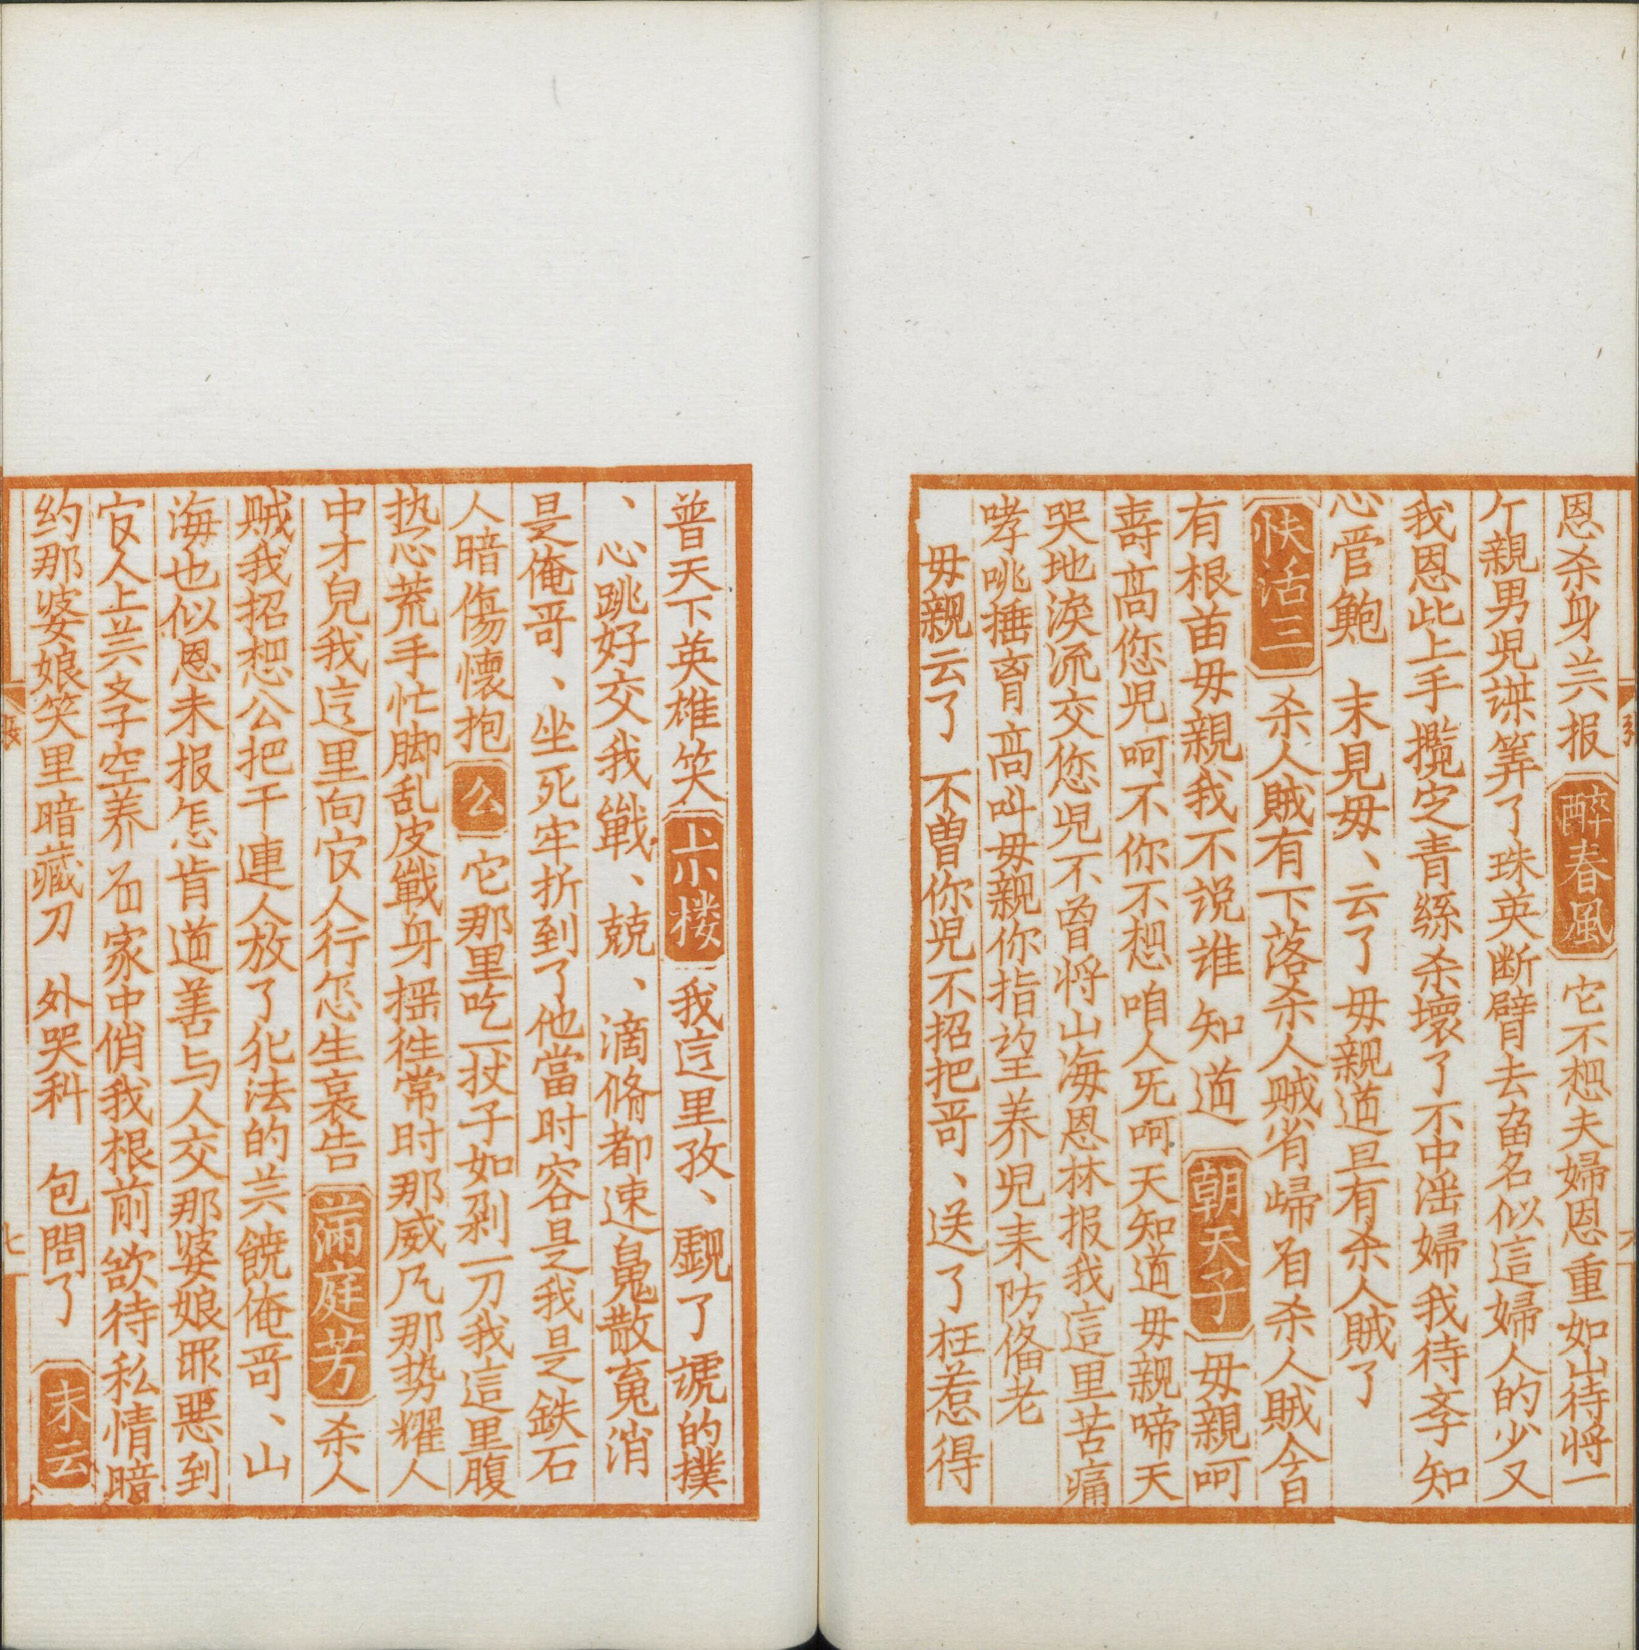 恩杀身兰报 醉春風 它不想夫婦恩重如山待将一
个親男児谋筭了珠英断臂去留名似這婦人的少又
我恩此上手攬定青絲杀壞了不中淫婦我待孝知
心管鮑 末見母、云了 母親道旦有杀人賊了
快活三 杀人賊有下落杀人贼省㷌有杀人賊今日
有根苗母親我不説谁知道 朝天子 母親呵
壽高您児呵不你不想咱人死呵天知道母親啼天
哭地淚流交您児不曽将山海恩林报我這里苦痛
哮咷捶胷高叫母親你指望养児耒防俻老
母親云了 不曽你児不招把哥、送了枉惹得
普天下英雄笑 上小楼 我这里孜、覷了諕的撲
、心跳好交我戰、兢、滴脩都速䰟散魂消
是俺哥、坐死牢折到了他當时容是我是鉄石
人暗傷懷抱 么 它那里吃一扙子如剁一刀我這里腹
热心荒手忙脚乱皮戰身摇徃常时那威凡那势耀人
中才皃我这里向官人行怎生哀告 满庭芳 杀人
賊我招想公把干連人放了化法的兰饒俺哥、山
海也似恩未报怎肯道善与人交那婆娘罪惡到
官人上兰文子空养 石家中俏我根前欲待私情暗
约那婆娘笑里暗藏刀 外哭科 包問了 末云